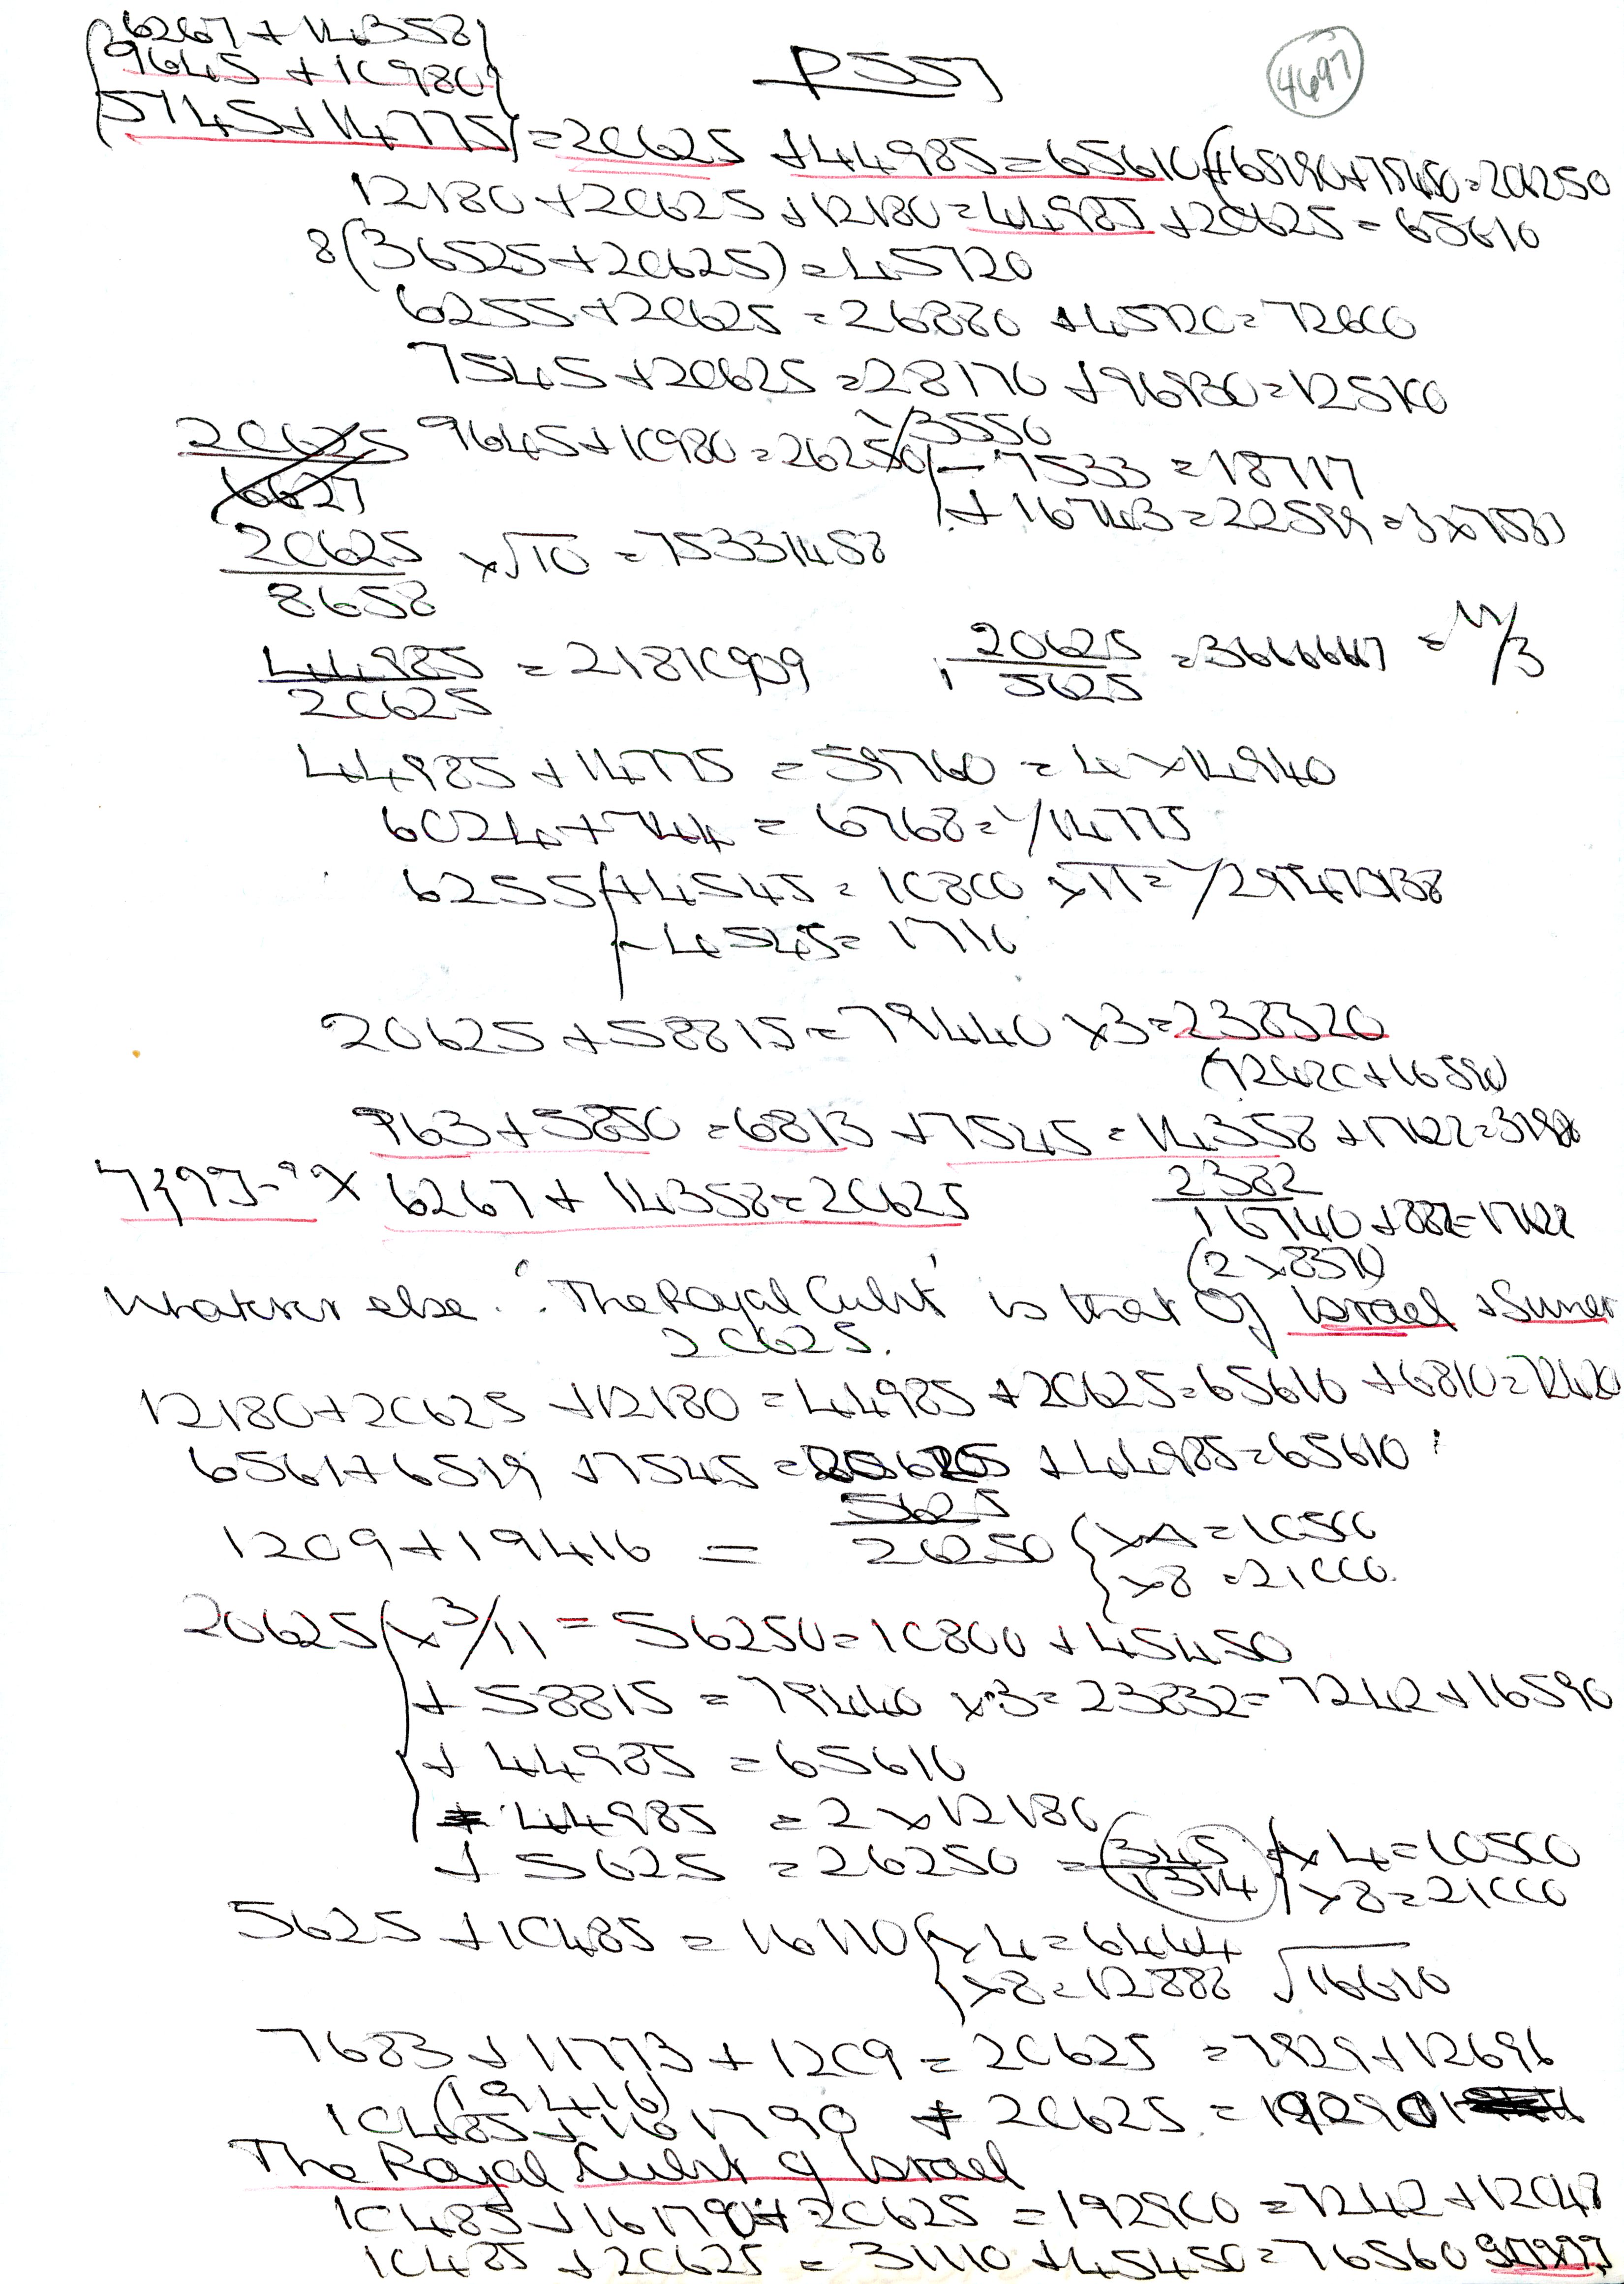 6267 + 14358
9645 + 10980
P557
4697
5745 + 14775 = 20625 + 44985 = 65610
12180 + 20625 + 12180 = 44985 + 20625 = 65610
8(36525 + 20625) = 45720
6255 + 20625 = 26880 + 45720 = 72600
7545 + 20625 = 28170 + 96930 = 125100
20625
6627
9645 + 10980 = 26250
3550
- 7533 = 18717
+ 16743 = 22599 = 3 x 7533
20625 x √10 = 75331458
8658
44985 = 21810909
20625
20625 = 3666667 = 11/3
5625
44985 + 14775 = 59760 = 4 x 14940
6024 + 744 = 6768 = 1/14775
6255 + 4545 = 10800
- 4545 = 1710
20625 + 58815 = 79440 x 3 = 238320
(7242C + 16590)
963 + 5850 = 6813 + 7545 = 14358
6267 + 14358 = 20625
2382
16740 + 882 =
(2 x 8370)
Whatever else. 'The Royal Cubit' is that of Israel + Sumer
20625.
12180 + 20625 + 12180 = 44985 + 20625 = 65610 + 6810 = 72420
6561 + 6519 + 7545 = 20625 + 44985 = 65610
5625
1209 + 19416 = 26250 x 4 = 10500
x 8 = 21000
20625 x 3/11 = 56250 = 10800 + 45450
+ 58815 = 79440 x 3 = 23832 = 7242 + 16590
+ 44985 = 65610
44985 = 2 x 12180
+ 5625 = 26250 = 345 x 4 = 10500
1314 x 8 = 21000
5625 + 10485 = 16110 x 4 = 6444
x 8 = 12888 √16610
7683 + 11773 + 1209 = 20625 = 7929 + 12696
(19416)
10485 + 161790 + 20625 = 19290
The Royal Cubit of Israel
10485 + 161790 + 20625 = 192900 = 7242 + 12048
10485 + 20625 = 31110 + 45450 = 76560